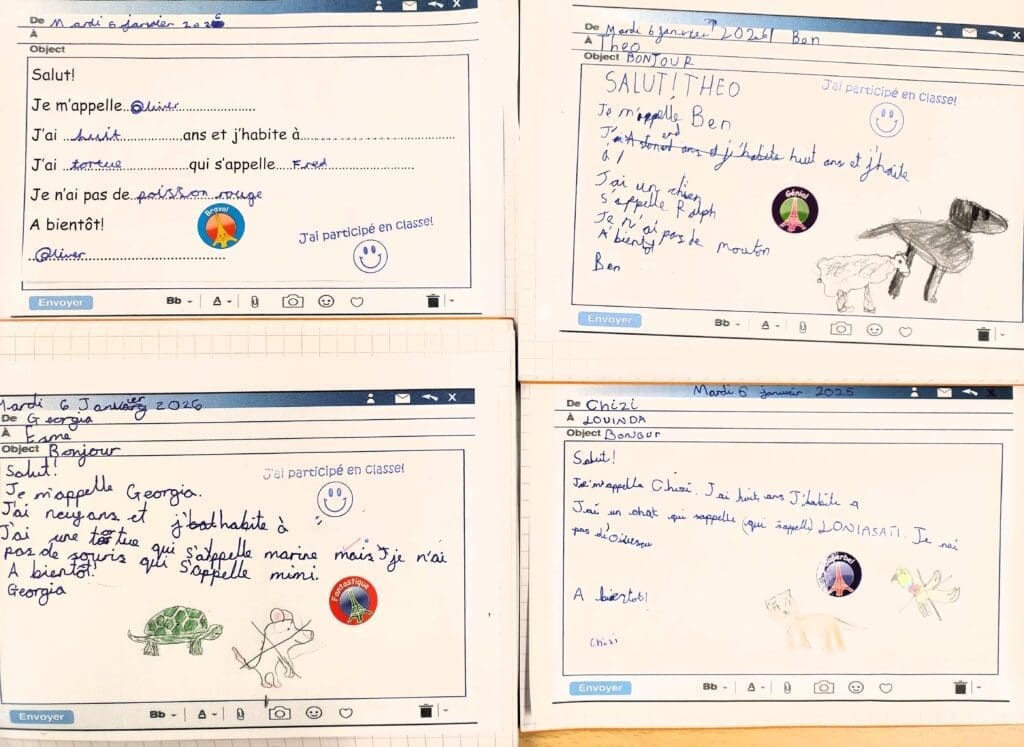 De Mardi 6 janvier 2026
À
Object
Salut!
Je m'appelle Oliver
J'ai huit ans et j'habite à
J'ai tortue qui s'appelle Fred
Je n'ai pas de poisson rouge
A bientôt!
Bravo!
J'ai participé en classe!
Oliver
Envoyer
Bb A
De Mardi 6 janvier 2026 Ben
À Theo
Object BONJOUR
SALUT! THEO
J'ai participé en classe!
Je m'appelle Ben
ans et j'habite huit ans et j'haite
à
J'ai un chien
s'appelle Ralph
Génial
Je n'ai pas de mouton
A bientot
Ben
Envoyer
Bb A
Mardi 6 January ier 2026
De Georgia
À Esme
Object Bonjour
Salut!
J'ai participé en classe!
Je m'appelle Georgia.
J'ai neuf ans et j'habite à
J'ai une tortue qui s'appelle marine mais Jje n'ai
pas de souris qui s'appelle mimi.
A bientôt!
Georgia
Fantastique
Envoyer
Bb A
Mardi 6 janvier 2025
De Chizi
À LOUINDA
Object Bonbur
Salut!
Je m'appelle Chizi. J'ai huit ans J'habite a
J'ai un chat qui sappelle (qui sappell) LONIASATI. Je nai
pas
A bientot!
Chizi
Envoyer
Bb A